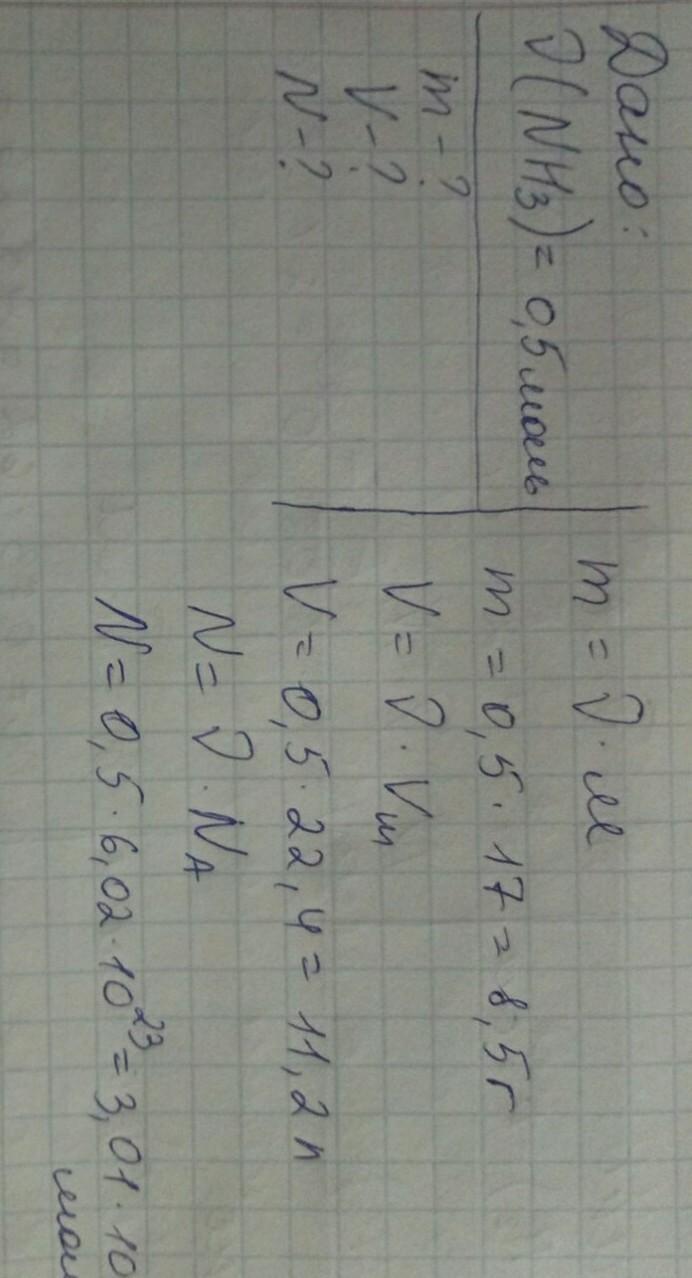 Дано:
ν(NH₃) = 0,5 моль
m - ?
V - ?
N - ?
m = ν · M
m = 0,5 · 17 = 8,5 г
V = ν · Vm
V = 0,5 · 22,4 = 11,2 л
N = ν · N_A
N = 0,5 · 6,02 · 10²³ = 3,01 · 10